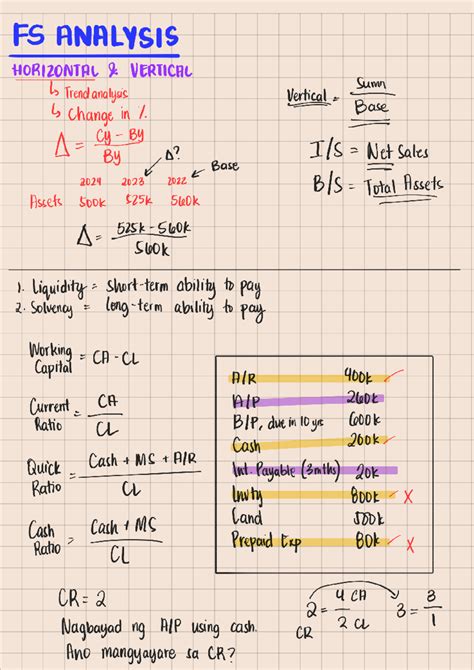 FS ANALYSIS
HORIZONTAL & VERTICAL
↳ Trend analysis
↳ Change in %
Δ = Cy - By
By
Δ?
Base
2024 2023 2022
Assets 500k 525k 560k
Δ = 525k - 560k
560k
Vertical =
Base
I/S = Net Sales
B/S = Total Assets
1. Liquidity = short-term ability to pay
2. Solvency = long-term ability to pay
Working Capital = CA - CL
Current Ratio = CA
CL
Quick Ratio = Cash + MS + A/R
CL
Cash Ratio = Cash + MS
CL
A/R 400k ✓
A/P 260k
B/P, due in 10 yrs 600k
Cash 200k ✓
Int. Payable (3mths) 20k
Invty 800k ✓ X
Land 500k
Prepaid Exp 80k ✓ X
CR = 2
Nagbayad ng A/P using cash.
Ano mangyayare sa CR?
2 = 4 CA
2 CL
CR
3 = 3
1